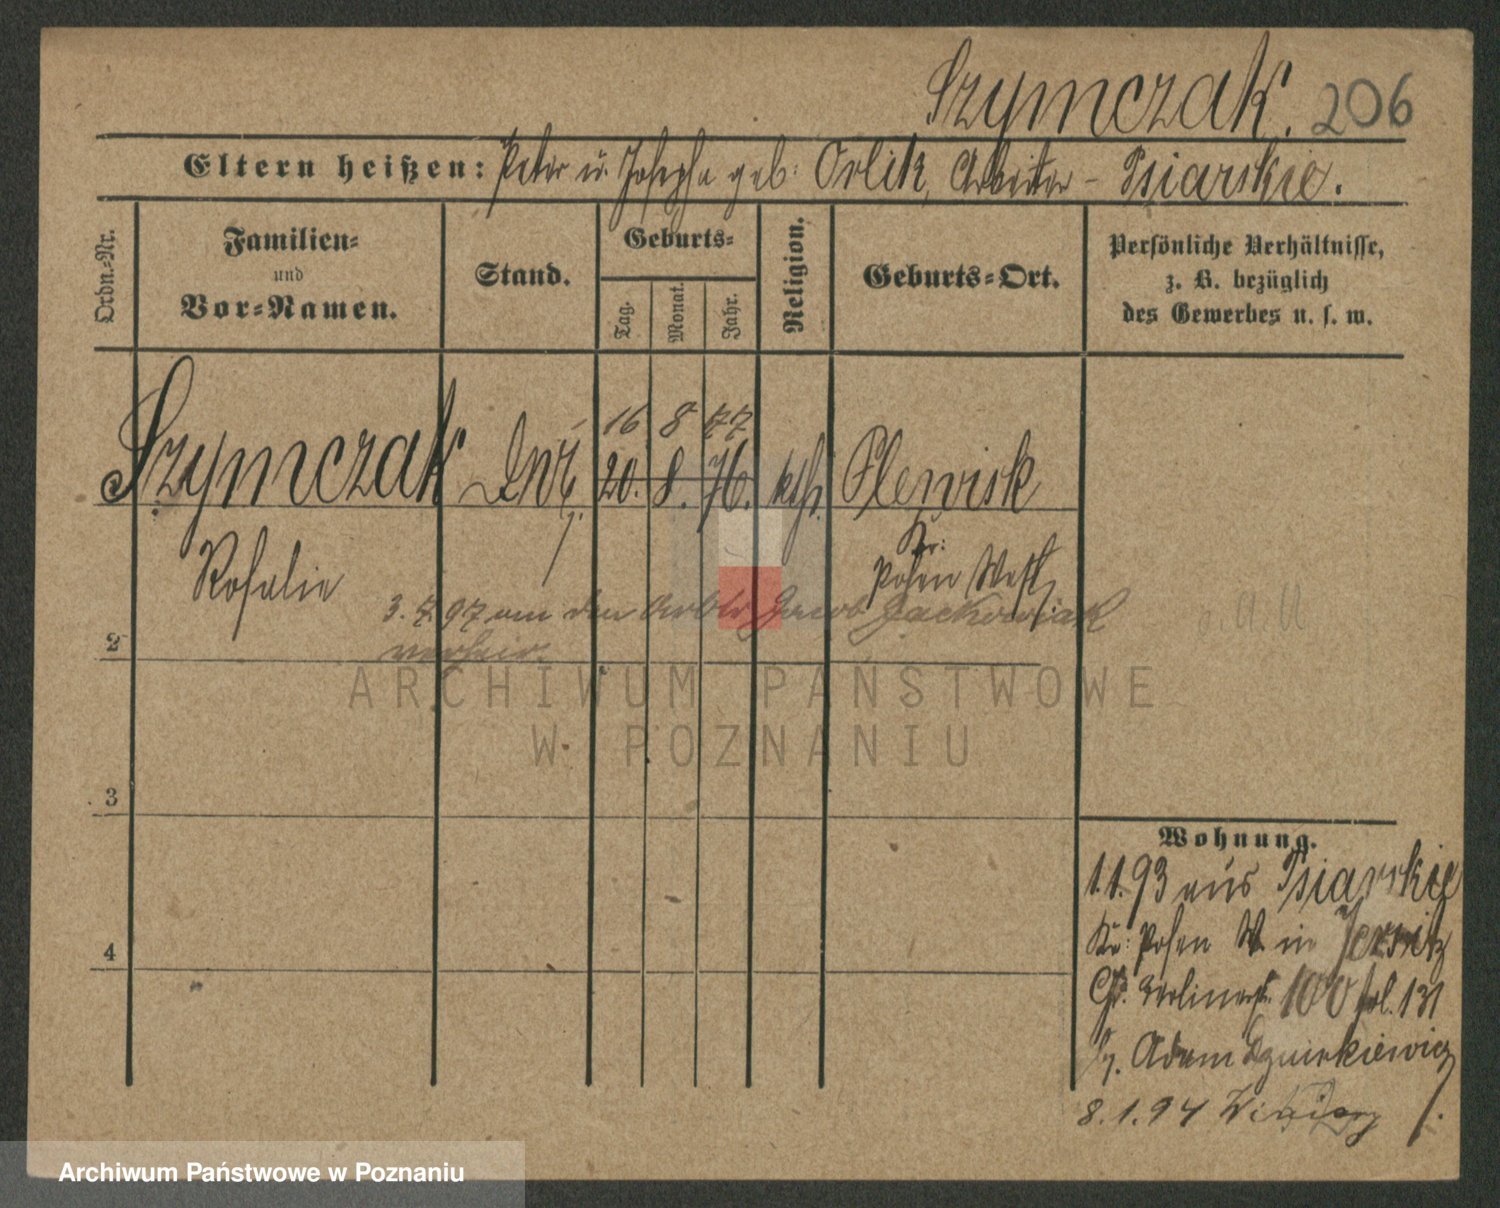 Szymczak. 206
Eltern heißen: Peter u. Josepha geb: Orlik, Arbeiter - Psiarskie.
Ordn.-Nr.
Familien-
und
Vor-Namen.
Stand.
Geburts-
Tag.
Monat.
Jahr.
Religion.
Geburts-Ort.
Persönliche Verhältnisse,
z. B. bezüglich
des Gewerbes u. s. w.
16 8 77
Szymczak 20. 8. 76. kth. Plewisk
Kr:
Rosalie Posen West
3. 7. 97 am den Arbtr Jacob Jackowiak
verheir.
2
3
4
Wohnung.
1.1.93 aus Psiarskie
Kr: Posen W. in Jersitz
Gr. Berlinerstr. 100 fol. 131
b/. Adam
8.1.94 Winiary
ARCHIWUM PAŃSTWOWE
W POZNANIU
Archiwum Państwowe w Poznaniu